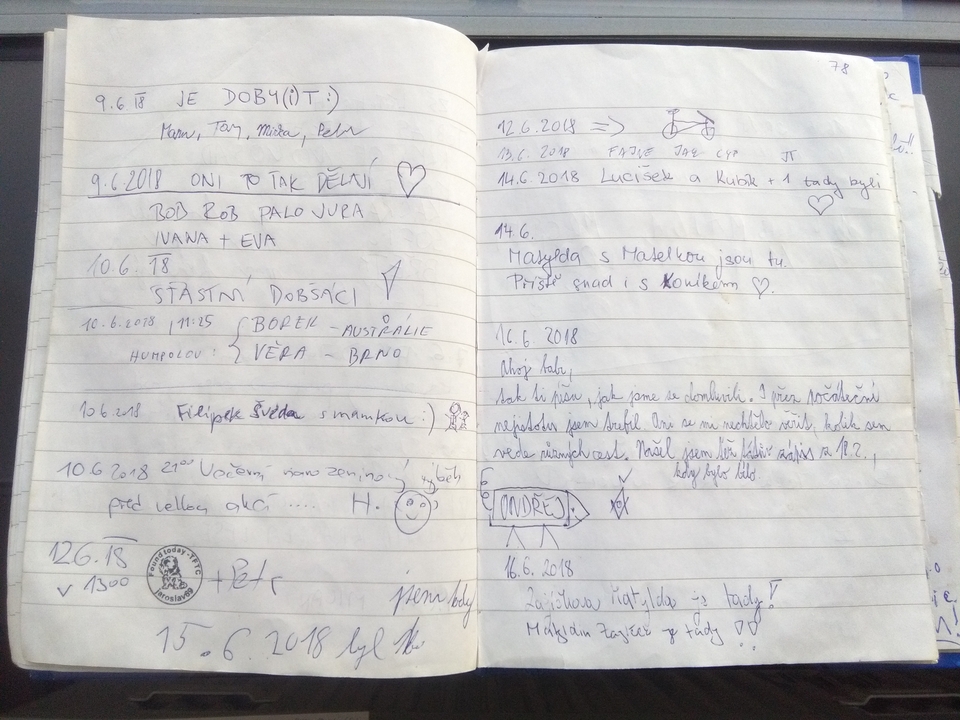 9.6 18 JE DOBY(i)T :)
Tom, Míša, Petr
9.6.2018 ONI TO TAK DĚLNÍ
BOB ROB PALO JURA
IVANA + EVA
10.6. 18
ŠŤASTNÍ DOBŠÁCI
10.6.2018, 11:25 BOREK - AUSTRÁLIE
HUMPOLOU: VĚRA - BRNO
10.6.2018 Filípek Švéda s mamkou :)
10.6 2018 21⁰⁰ výběh
před velkou akcí .... H.
12.6.18
v 13⁰⁰
Found today - TFTC
jaroslav69
+ Petr
jsem tady
15.6.2018 byl
78
12.6.2018 =>
13.6. 2018
14.6.2018 Lucíšek a Kubík + 1 tady byli
14.6.
Matylda s Mateřkou jsou tu.
Příště snad i s Koníkem
16.6. 2018
Ahoj tati,
tak ti píšu, jak jsme se domluvili. I přes počáteční
nejistotu jsem trefil. Ani se mi nechtělo věřit, kolik sem
vede různých cest. Našel jsem též zápis z 18.2.,
kdy bylo bílo.
ONDŘEJ
16.6.2018
Matylda je tady!
tady